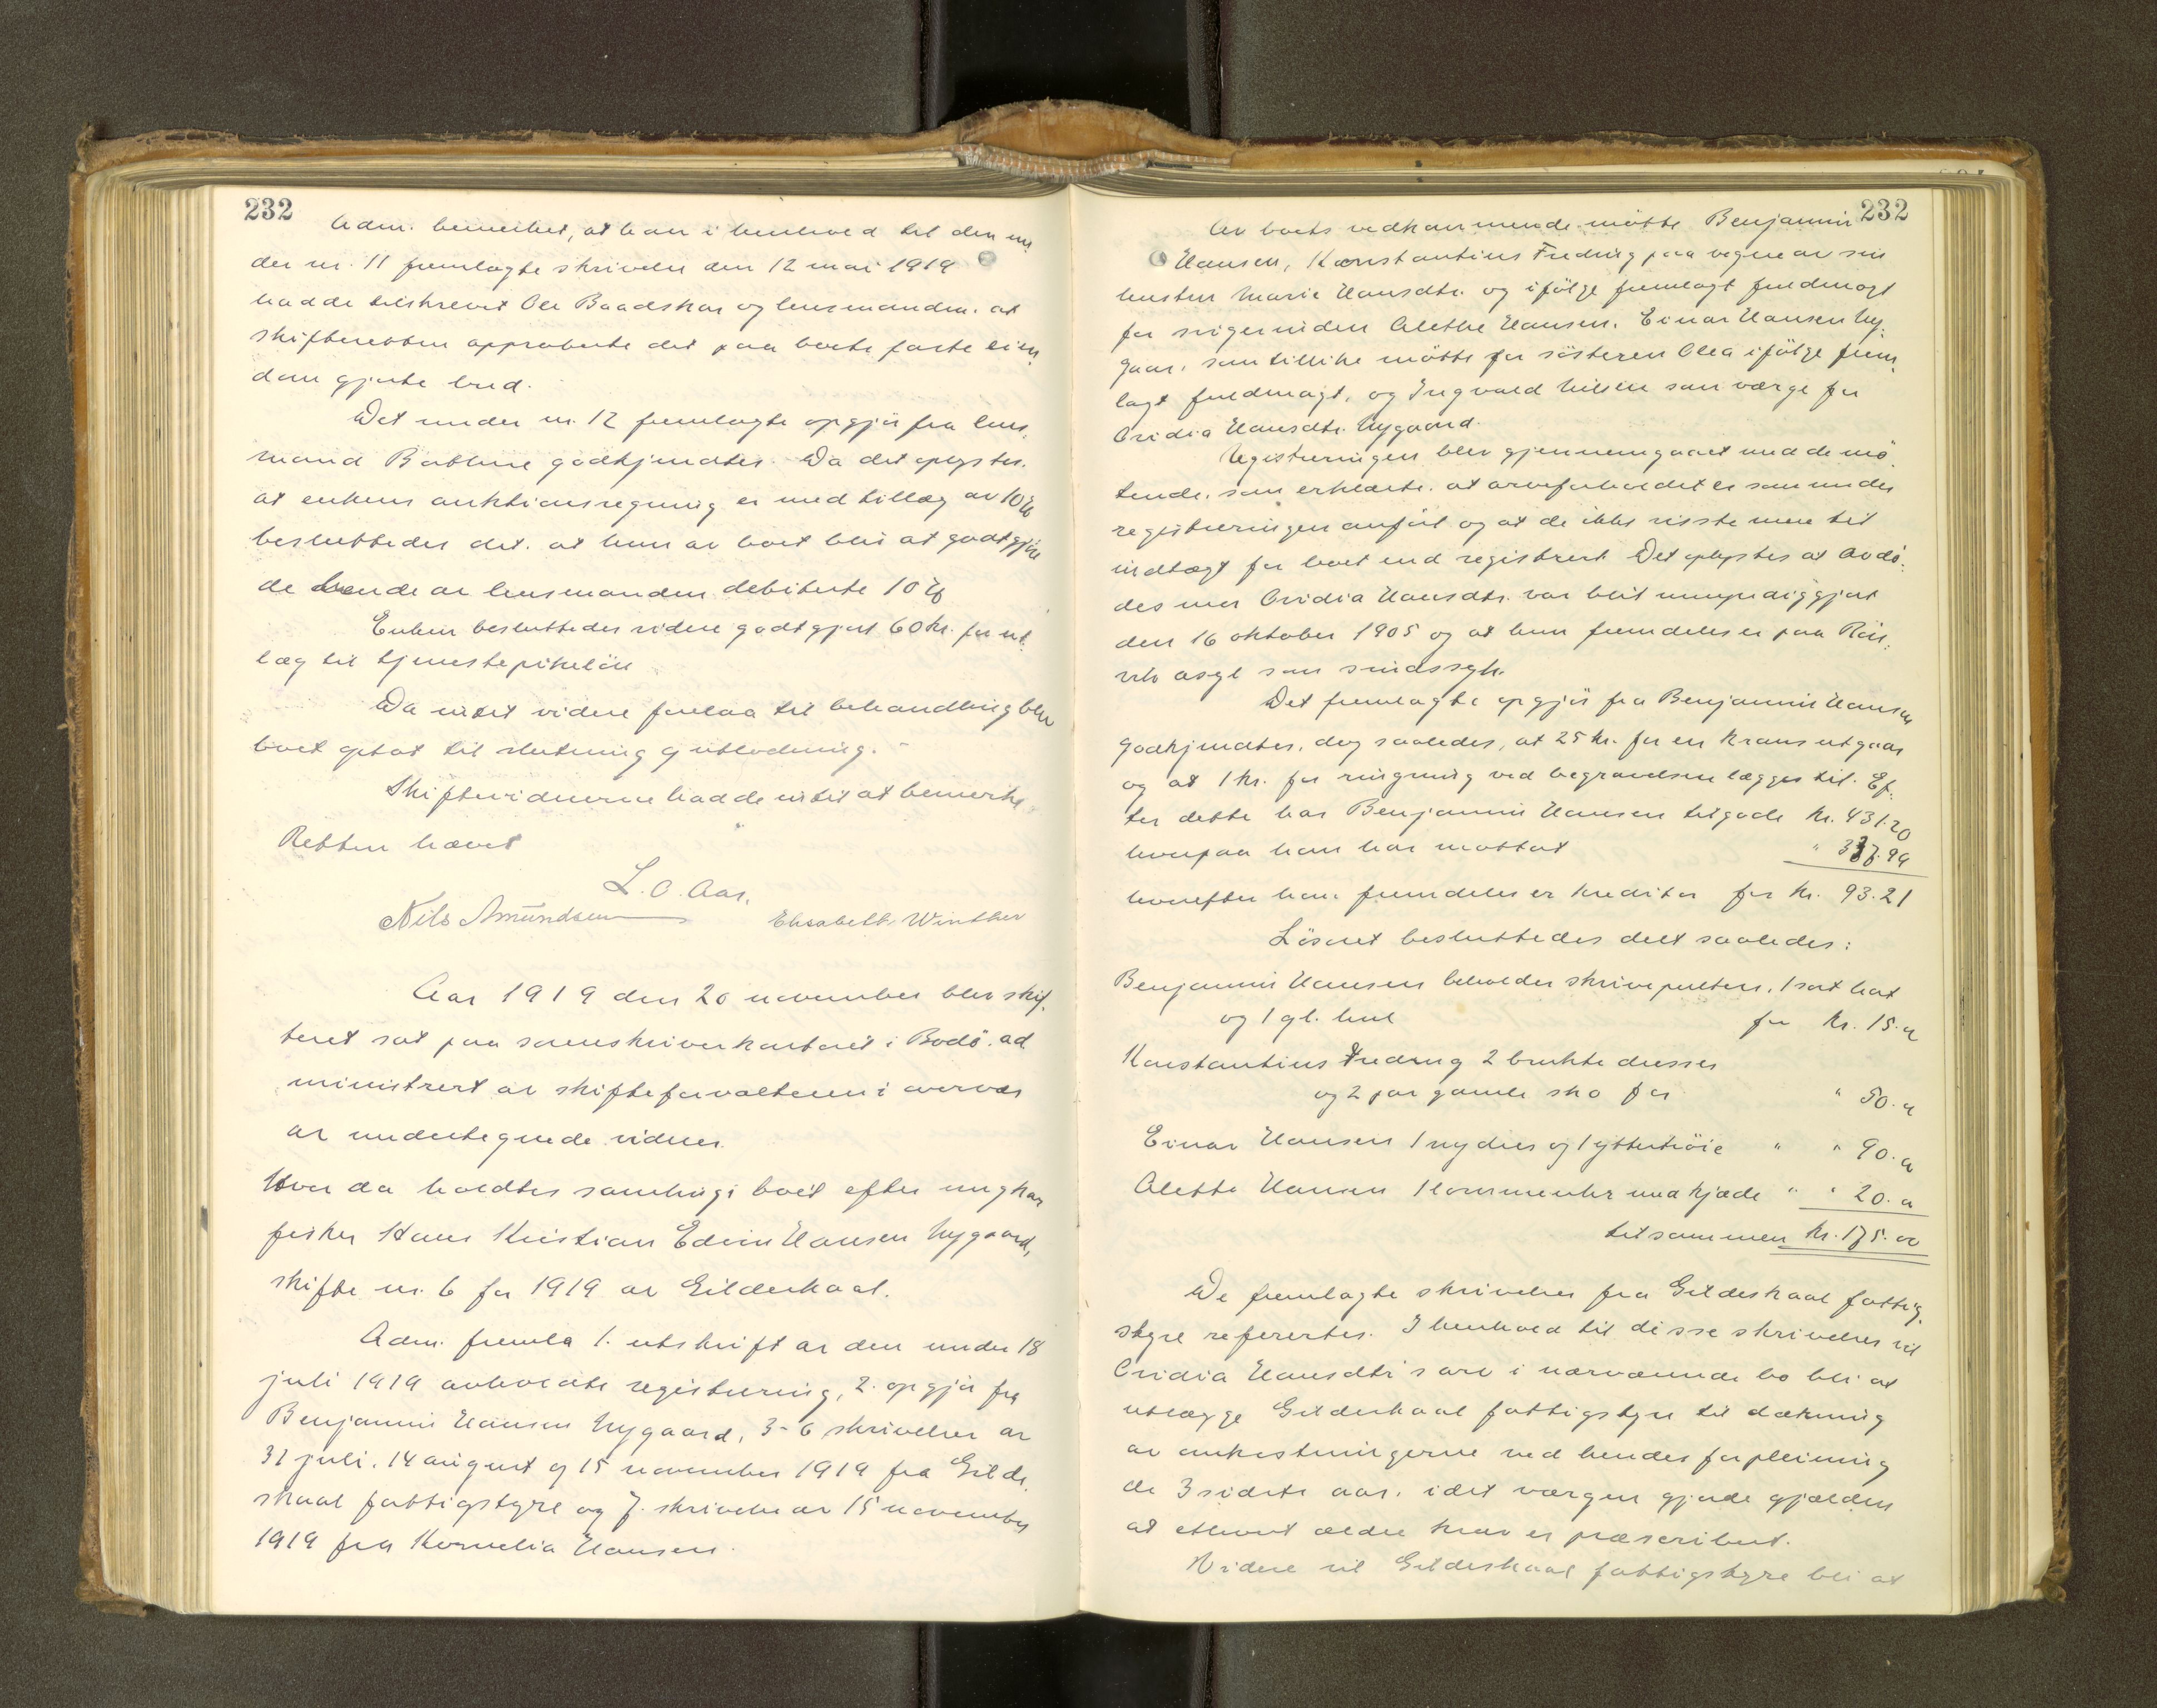 232
Adm. bemerket, at han i henhold til den un
der nr. 11 fremlagte skrivelse den 12 mai 1919
hadde tilskrevet Ole Baadskar og lensmanden, at
skifteretten approberte det paa boets faste eien
dom gjorte bud.
Det under nr. 12 fremlagte opgjør fra lens
mand Bobline godkjendtes. Da det oplystes,
at enkens auktionsregning er med tillæg av 10%
besluttedes det, at hun av boet blir at godtgjøre
de hende av lensmanden debiterte 10%
Enken besluttedes videre godtgjort 60 kr. for ut
læg til tjenestepikeløn
Da intet videre forelaa til behandling blev
boet optat til slutning og utlodning.
Skiftevidnerne hadde intet at bemerke.
Retten hævet
L. O. Aar.
Nils Amundsen Elisabeth Winther
Aar 1919 den 20 november blev skif
teret sat paa sorenskriverkontoret i Bodø, ad
ministrert av skifteforvalteren i overvær
av undertegnede vidner.
Hvor da holdtes samling i boet efter ungkar
fisker Hans Kristian Edvin Hansen Nygaard,
skifte nr. 6 for 1919 av Gildeskaal.
Adm. fremla 1. utskrift av den under 18
juli 1919 avholdte registrering, 2. opgjør fra
Benjamin Hansen Nygaard, 3-6 skrivelser av
31 juli, 14 august og 15 november 1919 fra Gilde
skaal fattigstyre og 7. skrivelse av 15 november
1919 fra Kornelia Hansen.
232
Av boets vedkommende møtte Benjamin
Hansen, Konstantins Fredrig paa vegne av sin
hustru Marie Hansdtr. og ifølge fremlagt fuldmagt
for svigerinden Alethe Hansen, Einar Hansen Ny
gaar, som tillike møtte for søsteren Olea ifølge frem
lagt fuldmagt, og Ingvald Nilsen som værge for
Ovidia Hansdtr. Nygaard.
Registreringen blev gjennemgaaet med de mø
tende, som erklærte, at arveforholdet er som under
registreringen anført og at de ikke visste mere til
indtægt for boet end registrert. Det oplystes at avdø
des mor Ovidia Hansdtr. var blit umyndiggjort
den 16 oktober 1905 og at hun fremdeles er paa Røn
vik asyl som sindssyk.
Det fremlagte opgjør fra Benjamin Hansen
godkjendtes, dog saaledes, at 25 kr. for en krans utgaar
og at 1 kr. for ringning ved begravelsen lægges til. Ef
ter dette har Benjamin Hansen tilgode kr. 431.20
hvorpaa han har mottat " 337.99
hvorefter han fremdeles er kreditor for kr. 93.21
Løsøret besluttedes delt saaledes:
Benjamin Hansen beholder skrivepulten, 1 sort hat
og 1 gl. hue for kr. 15.00
Konstantins Fredrig 2 brukte dresser
og 2 par gamle sko for " 50.00
Einar Hansen 1 ny dres og 1 yttertrøie " " 90.00
Alette Hansen 1 lommeuhr med kjæde " " 20.00
tilsammen kr. 175.00
De fremlagte skrivelser fra Gildeskaal fattig
styre refererters. I henhold til disse skrivelser vil
Ovidia Hansdtr's arv i nærværende bo bli at
utlægge Gildeskaal fattigstyre til dækning
av omkostningerne ved hendes forpleining
de 3 sidste aar, idet værgen gjorde gjældende
at ethvert ældre krav er præscribert.
Videre vil Gildeskaal fattigstyre bli at